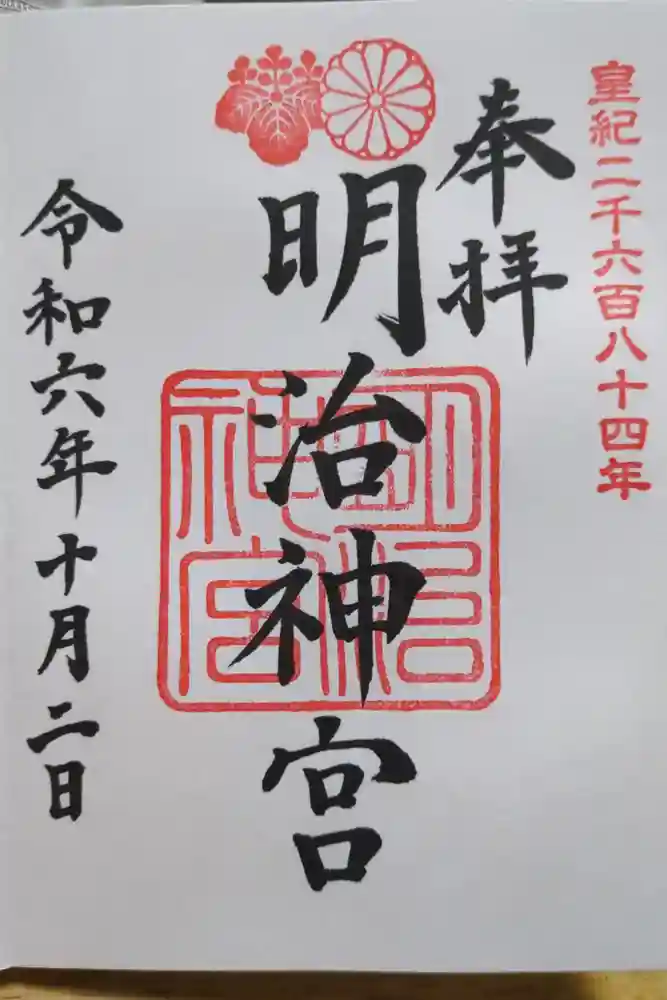 皇紀二千六百八十四年
奉拝
明治神宮
明治神宮
令和六年十月二日